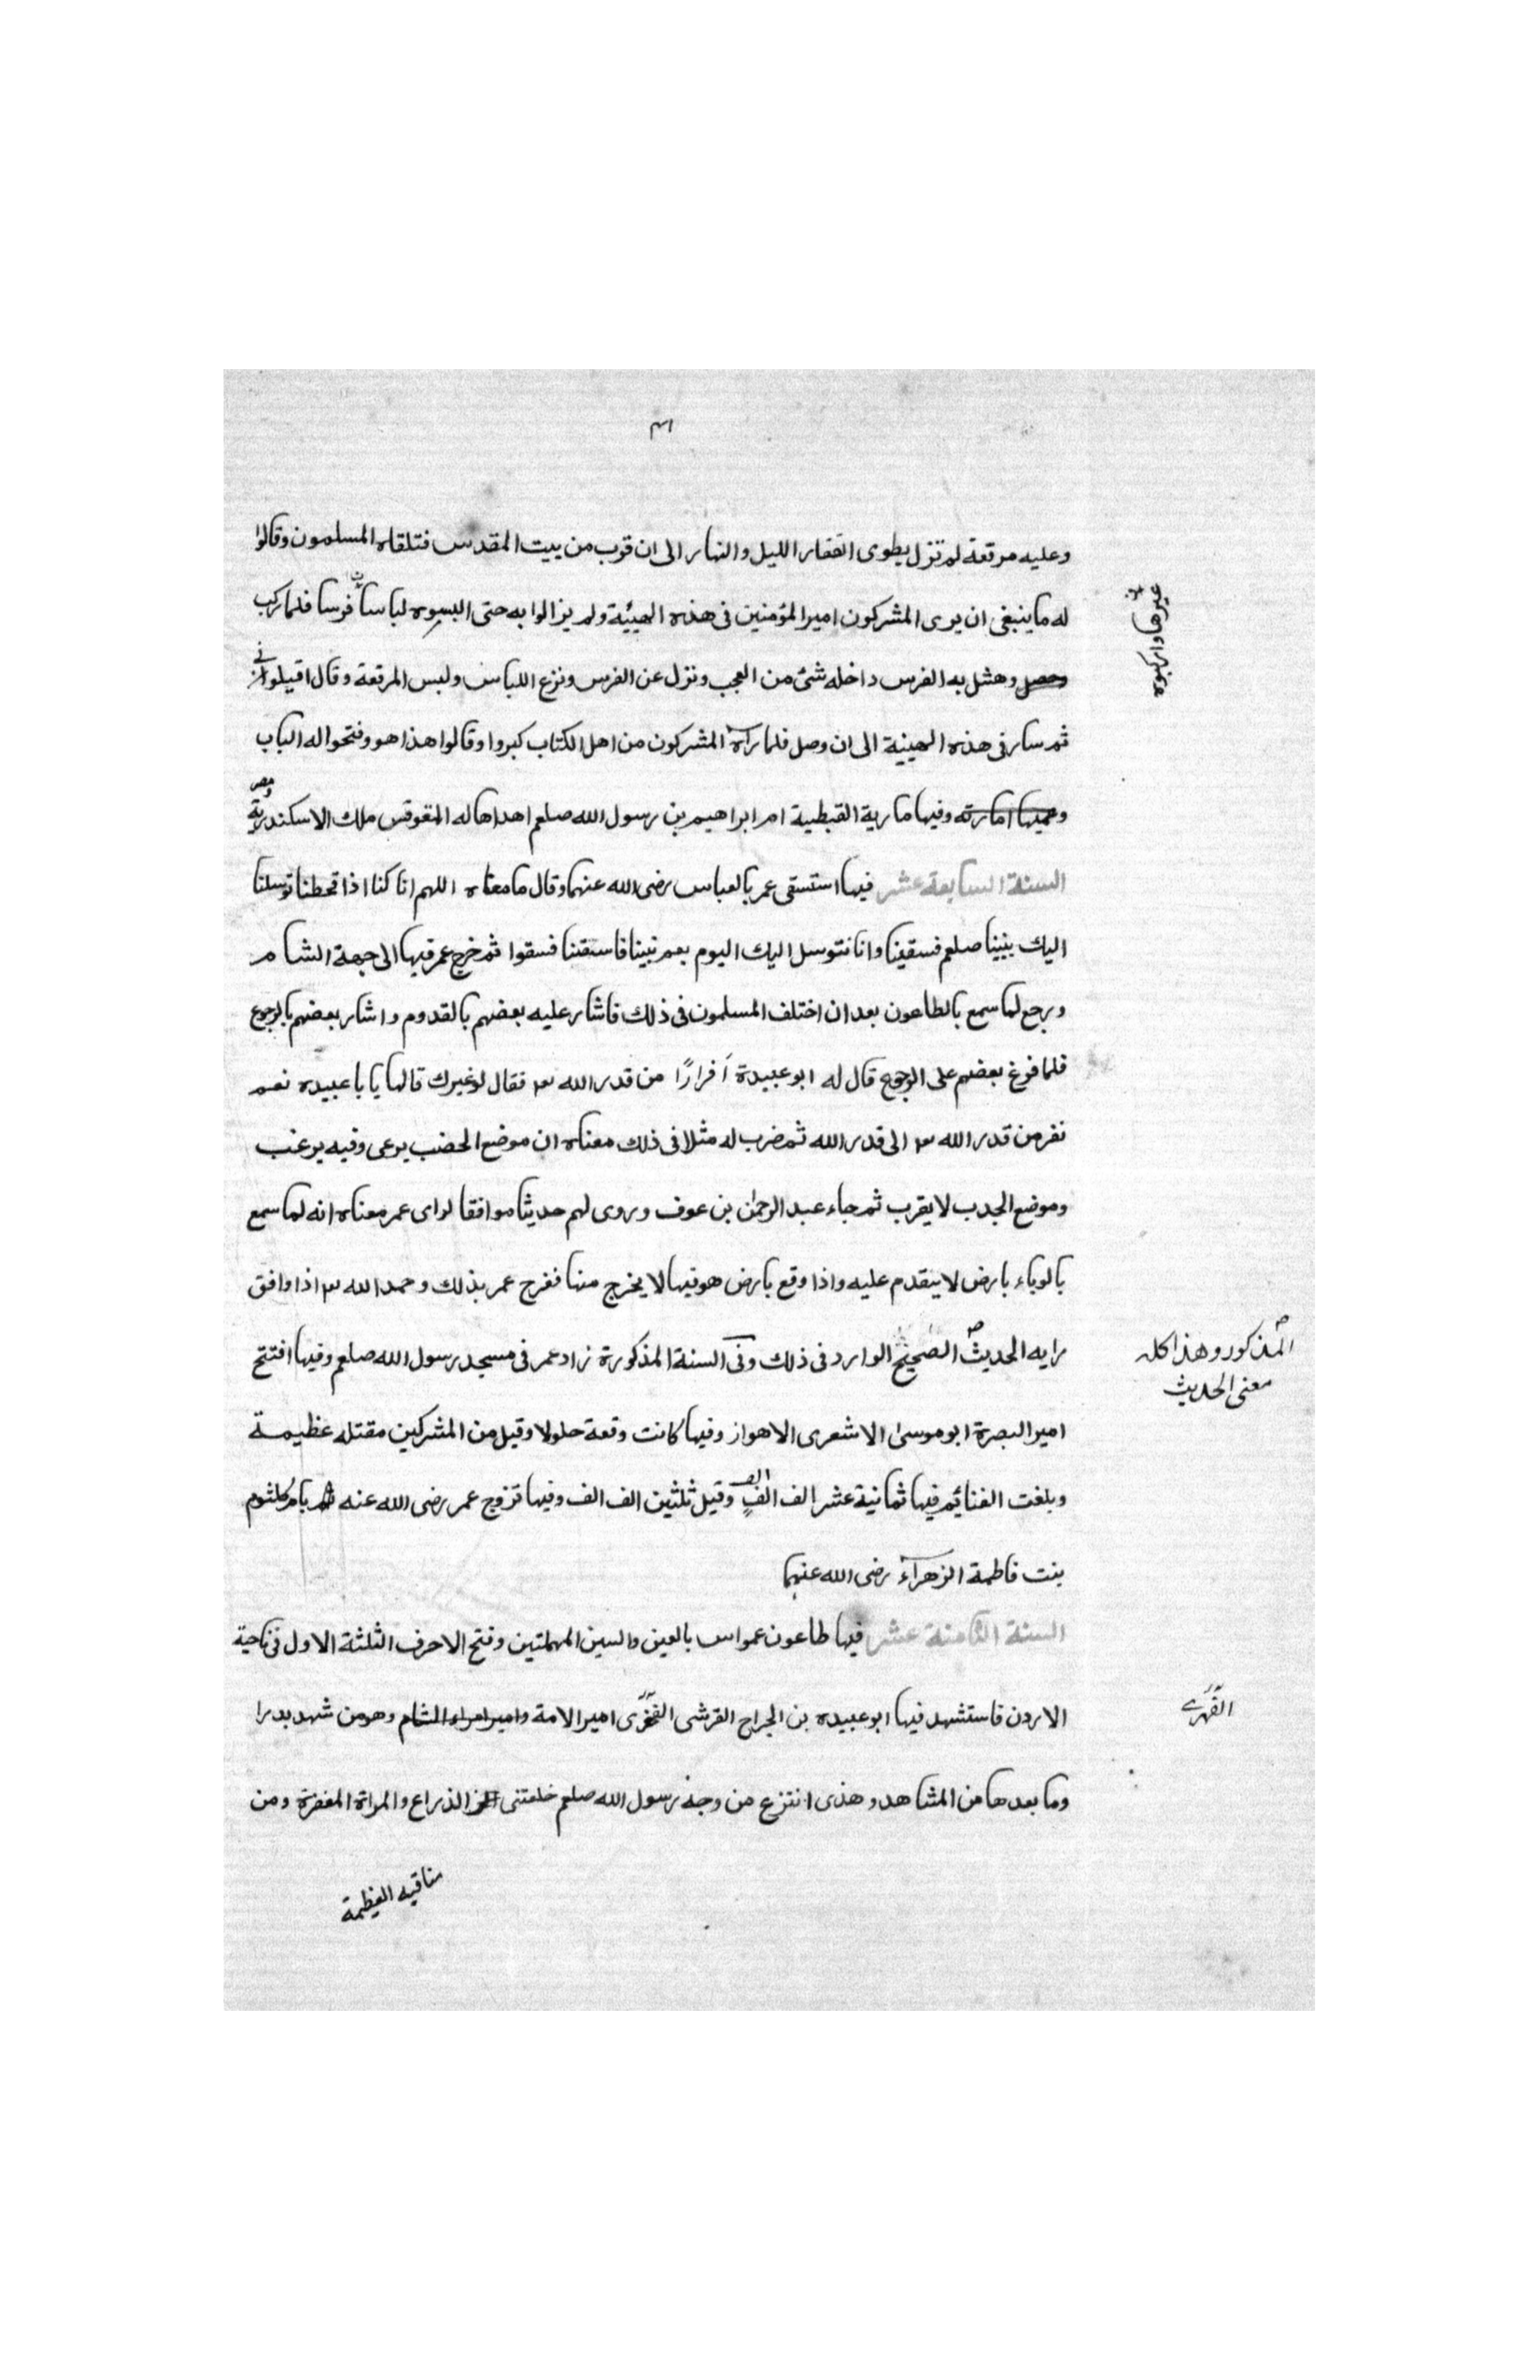 ٣١
وعليه مرقعة لم تزل يطوى القفار الليل والنهار الى ان قرب من بيت المقدس فتلقاه المسلمون وقالوا
له ما ينبغى ان يرى المشركون امير المؤمنين فى هذه الهيئية ولم يزالوا به حتى البسوه لباسا فرسا فلما ركب
غيرها واركبوه
وهشل به الفرس داخله شئ من العجب ونزل عن الفرس ونزع اللباس ولبس المرقعة وقال اقيلونى
ثم سار فى هذه الهيئية الى ان وصل فلما رآه المشركون من اهل الكتاب كبروا وقالوا هذا هو وفتحوا له الباب
وفيها مارية القبطية ام ابراهيم بن رسول الله صلعم اهداها له المقوقس ملك الاسكندرية ومصر
السنة السابعة عشر فيها استسقى عمر بالعباس رضى الله عنهما وقال ما معناه اللهم انا كنا اذا قحطنا توسلنا
اليك بنبينا صلعم فسقينا وانا نتوسل اليك اليوم بعم نبينا فاسقنا فسقوا ثم خرج عمر فيها الى جهة الشام
ورجع لما سمع بالطاعون بعد ان اختلف المسلمون فى ذلك فاشار عليه بعضهم بالقدوم واشار بعضهم بالرجوع
فلما فرغ بعضهم على الرجوع قال له ابو عبيدة أفرارًا من قدر الله تع فقال لو غيرك قالها يا با عبيده نعم
نفر من قدر الله تع الى قدر الله ثم ضرب له مثلا فى ذلك معناه ان موضع الخضب يرعى وفيه يرغب
وموضع الجدب لا يقرب ثم جاء عبد الرحمن بن عوف وروى لهم حديثا موافقا لراى عمر معناه انه لما سمع
بالوباء بارض لا يتقدم عليه واذا وقع بارض هو فيها لا يخرج منها ففرح عمر بذلك وحمد الله تع اذا وافق
رايه الحديث الصحيح الوارد فى ذلك وفى السنة المذكورة زاد عمر فى مسجد رسول الله صلعم وفيها افتتح
المذكور وهذا كله
معنى الحديث
امير البصرة ابو موسى الاشعرى الاهواز وفيها كانت وقعة جلولا وقيل من المشركين مقتله عظيمة
وبلغت الغنائم فيها ثمانية عشر الف الف وقيل ثلثين الف الف وفيها تزوج عمر رضى الله عنه بام كلثوم
بنت فاطمة الزهراء رضى الله عنهما
السنة الثامنة عشر فيها طاعون عمواس بالعين والسين المهملتين وفتح الاحرف الثلثة الاول فى ناحية
الاردن فاستشهد فيها ابو عبيده بن الجراح القرشى امير الامة وامير امراء الشام وهو من شهد بدرا
الفهرى
وما بعدها من المشاهد وهذى انتزع من وجه رسول الله صلعم خلقتى الذراع والمراة المغفرة ومن
مناقبه العظيمة